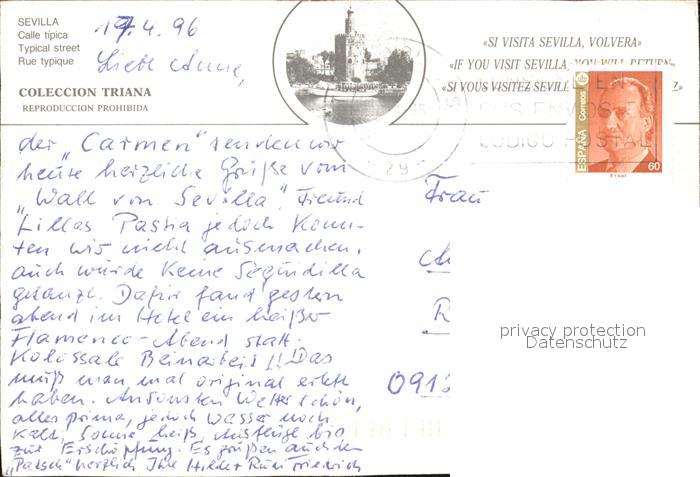 SEVILLA
Calle típica
Typical street
Rue typique
COLECCION TRIANA
REPRODUCCION PROHIBIDA
«SI VISITA SEVILLA, VOLVERA»
«IF YOU VISIT SEVILLA, YOU WILL RETURN
«SI VOUS VISITEZ SEVILLE
ESPAÑA
Correos
60
29
SUS ENVIOS
CODIGO POSTAL
4.96
Liebe Anne,
der „Carmen" senden wir
heute herzliche Grüße vom
„Wall von Sevilla". Freund
Lillas Pastia jedoch konn-
ten wir nicht ausmachen,
auch wurde keine Segündilla
getanzt. Dafür fand gestern
abend im Hotel ein heißer
Flamenco-Abend statt.
Kolossale Beinarbeit!! Das
muß man mal original erlebt
haben. Ansonsten Wetter schön,
alles prima, jedoch Wasser noch
kalt, Sonne heiß, Ausflüge bis
zur Erschöpfung. Es grüßen auch den
„Patsch" herzlich Ihre Hilde + Friedrich
Frau
091
privacy protection
Datenschutz